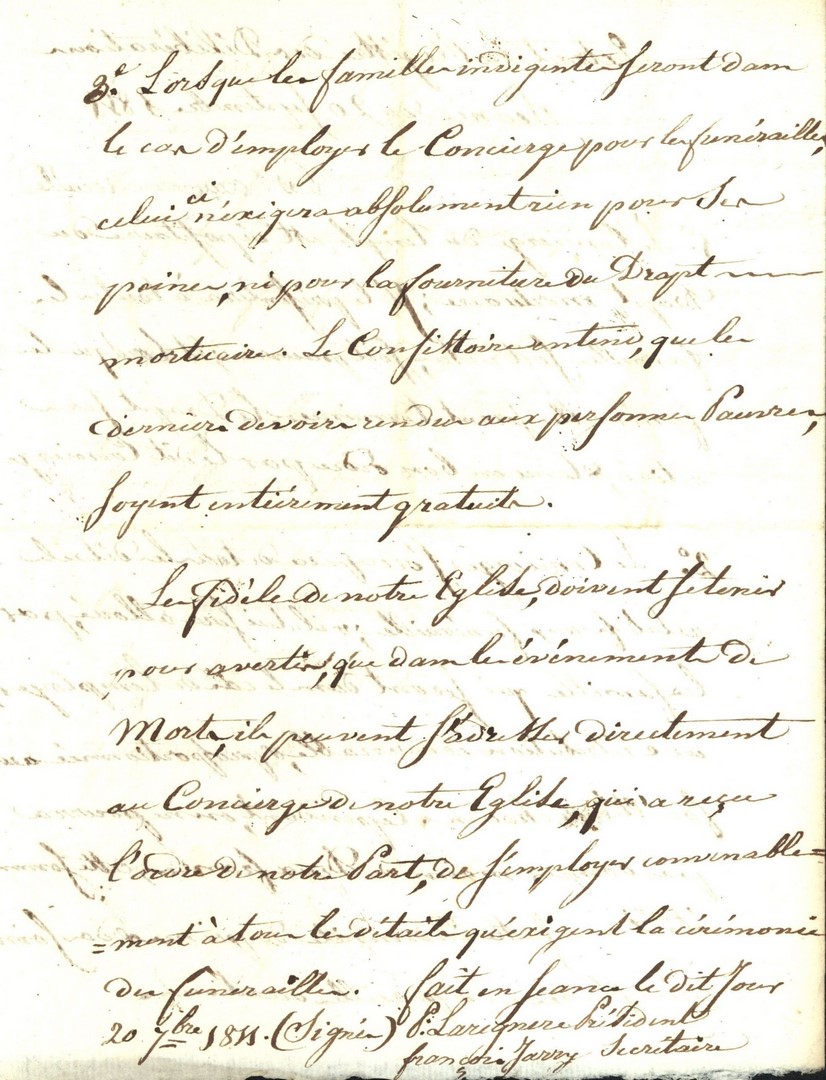 3.e Lorsque les familles indigentes seront dans
le cas d'employer le Concierge pour les funérailles,
celui ci n'éxigera absolument rien pour Ses
peines, ni pour la fourniture du Drapt
mortuaire. Le Consistoire entend, que les
derniers devoirs rendus aux personnes Pauvres,
soyent entiérement gratuits.
Les fidèles de notre Eglise, doivent se tenir
pour avertis, que dans les événements de
Morts, ils peuvent s'adresser directement
au Concierge de notre Eglise, qui a reçu
l'ordre de notre Part, de s'employer convenable=
=ment à tous les détails qu'exigent la cérémonie
des funerailles. fait en seance le dit Jour
20 7bre 1811. (Signés) P: Larignere Président
françois Jarry Secrétaire